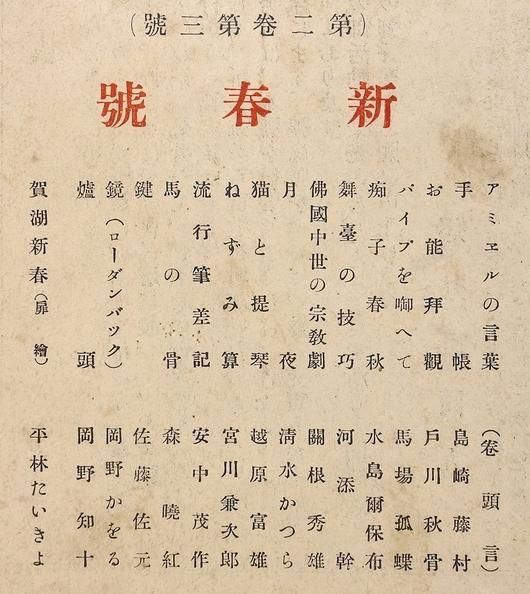 （第二卷第三號）
新春號
アミエルの言葉（卷頭言）
手帳 島崎藤村
お能拜觀 戶川秋骨
パイプを啣へて 馬場孤蝶
痴子春秋 水島爾保布
舞臺の技巧 河添幹
佛國中世の宗敎劇 關根秀雄
月夜 淸水かつら
猫と提琴 越原富雄
ねずみ算 宮川兼次郎
流行筆差記 安中茂作
馬の骨 森曉紅
鍵 佐藤佐元
鏡（ローダンバツク） 岡野かをる
爐頭 岡野知十
賀湖新春（扉繪） 平林たいきよ